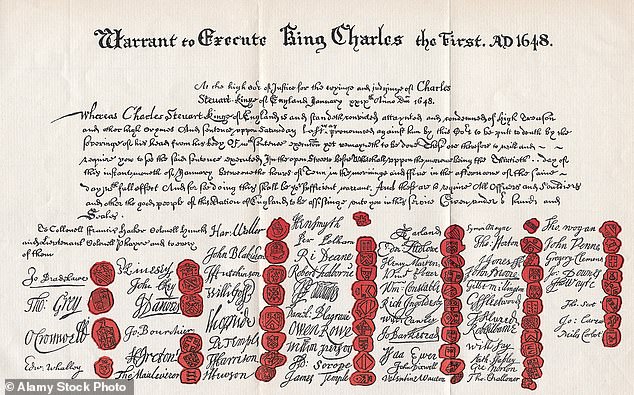 Warrant to Execute King Charles the First. AD 1648.
At the high Cort of Justice for the tryinge and judginge of Charles
Steuart kinge of England January xxixth Anno Dni 1648.
Whereas Charles Steuart kinge of England is and standeth convicted attaynted and condemned of high Treason
and other high Crymes And sentence uppon Saturday last was pronounced against him by this Cort to be putt to death by the
severinge of his head from his body Of wch sentence execucon yet remayneth to be done These are therefore to will and
require you to see the said sentence executed In the open Streete before Whitehall uppon the morrowe being the Thirtieth day of
this instante moneth of January betweene the houres of Tenn in the morninge and five in the afternoone of the same
day wth full effect And for so doing this shall be yor sufficient warrant And these are to require All Officers and Souldiers
and other the good people of this Nation of England to be assistinge unto you in this service Given under our hands and
Seales.
To Collonell Francis Hacker Colonell Huncks
and Lieutenant Colonell Phayre and to every
of them
Jo Bradshawe
Tho. Grey
O Cromwell
Edw. Whalley
John Okey
J Danvers
Jo Bourchier
H Ireton
Tho Mauleverer
Har. Waller
John Blakiston
J Hutchinson
Willi Goff
T Pride
P Temple
T Harrison
J Hewson
Hen Smyth
Per Pelham
Ri Deane
Robert Tichborne
Owen Rowe
William Purefoy
James Temple
Edm Ludlowe
Henry Marten
Vinct Potter
Wm Constable
Rich Ingoldesby
Will Cawley
Jo Barkstead
Isaa Ewer
John Dixwell
Valentine Wauton
Symon Mayne
Tho. Horton
J Jones
John Moore
Gilbt Millington
G Fleetwood
J Alured
Robt Lilburne
Will Say
Anth Stapley
Gre Norton
Tho. Challoner
Tho. Wogan
John Venn
Gregory Clement
Jo: Downes
Tho Wayte
Tho. Scot
Jo: Carew
Miles Corbet
© Alamy Stock Photo